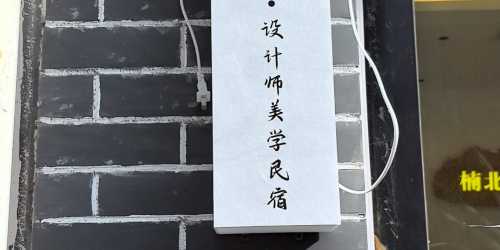 ·设计师美学民宿
楠北